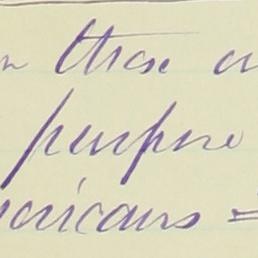 n those
purpose
ericans =